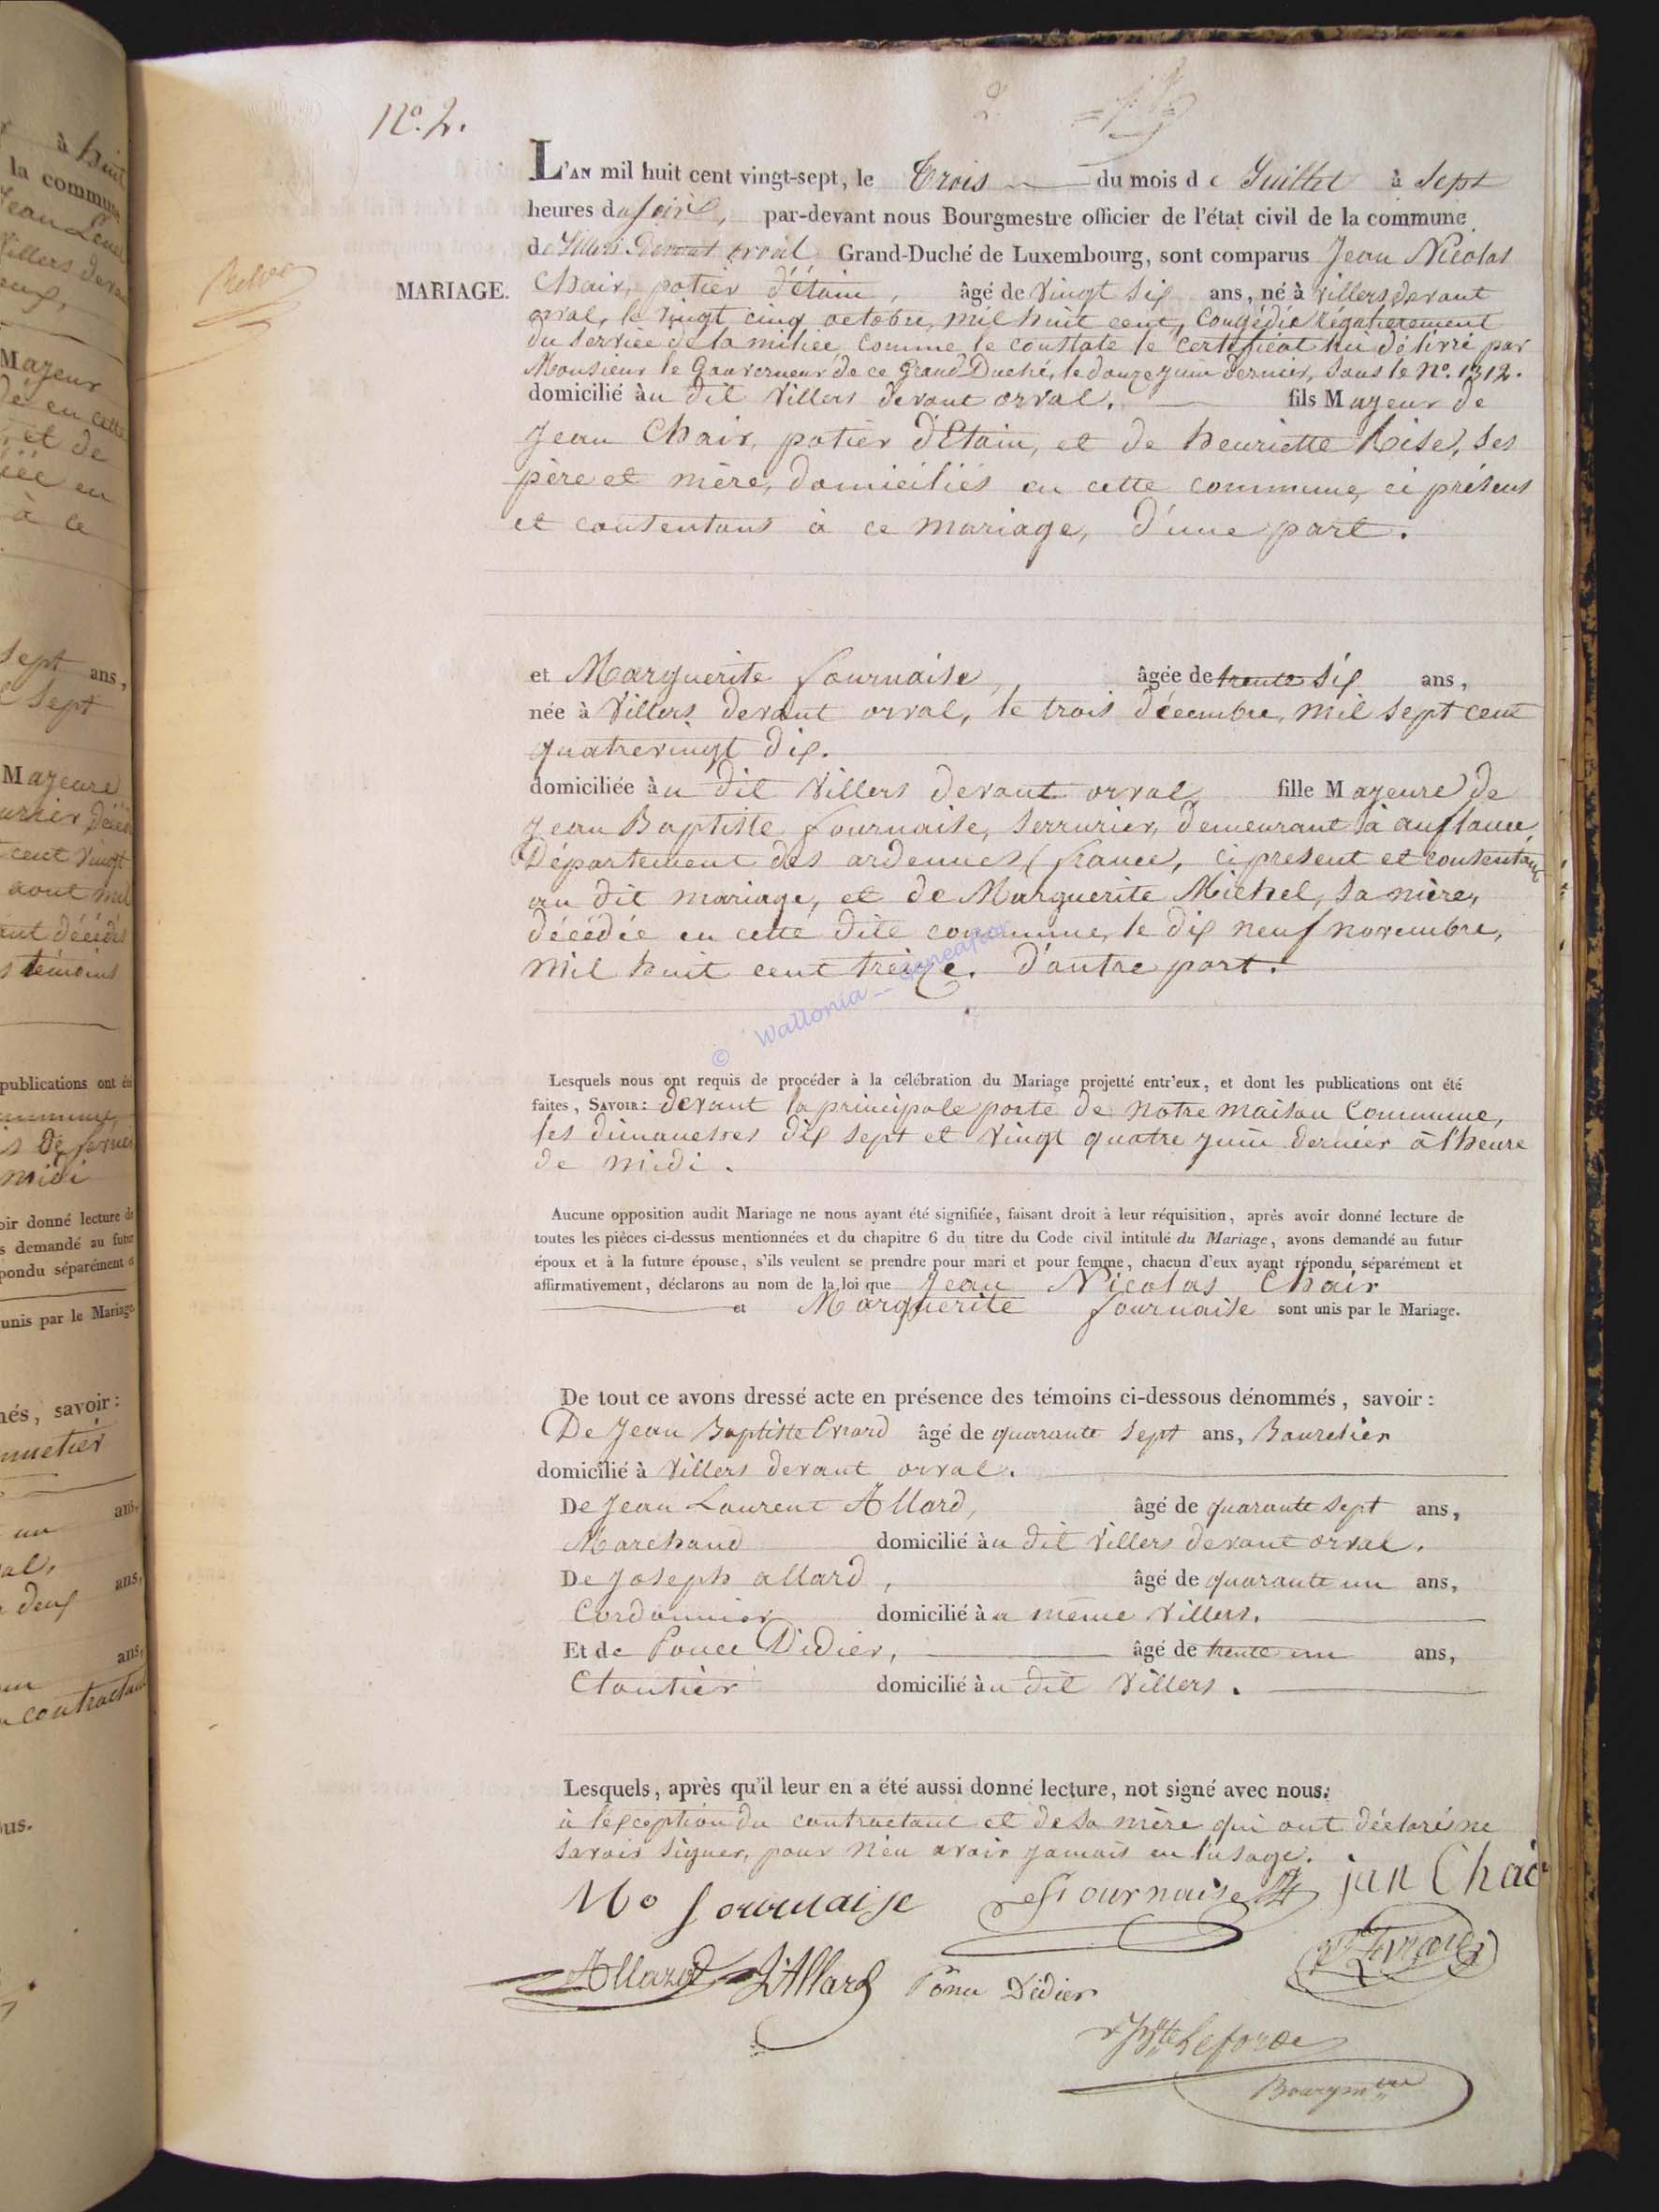 à huit
la commune
Jean
Villers devant
Mayeur
dé en cette
et de
en
à ce
sept ans,
sept
Mayeure
cent vingt
aout mil
décédés
témoins
publications ont été
midi
oir donné lecture de
s demandé au futur
pondu séparément et
unis par le Mariage.
nés, savoir:
un ans,
al,
deux ans,
ans,
contractant
us.
No. 2.
2
L'AN mil huit cent vingt-sept, le Trois du mois de Juillet à Sept
heures du soir, par-devant nous Bourgmestre officier de l'état civil de la commune
de Villers Devant orval Grand-Duché de Luxembourg, sont comparus Jean Nicolas
MARIAGE. Chair, potier d'étain, âgé de vingt six ans, né à villers devant
orval, le vingt cinq octobre, mil huit cent, Congédié Régulierement
du service de la milice comme le constate le certificat lui délivré par
Monsieur le Gouverneur de ce Grand Duché, le douze juin dernier, sous le No. 1312.
domicilié àu dit Villers devant orval. fils Mayeur de
Jean Chair, potier d'Etain, et de henriette Lise, ses
père et mère, domiciliés en cette commune, ci présens
et consentans à ce mariage, d'une part.
et Marguerite fournaise, âgée de trente six ans,
née à Villers devant orval, le trois décembre, mil sept cent
quatrevingt dix.
domiciliée àu dit Villers devant orval, fille Mayeure de
Jean Baptiste fournaise, serrurier, demeurant à auflance,
Département des ardennes (france, ci présent et consentant
au dit mariage, et de Marguerite Michel, sa mère,
décédée en cette dite commune, le dix neuf novembre,
mil huit cent treize. d'autre part.
© Wallonia
Lesquels nous ont requis de procéder à la célébration du Mariage projetté entr'eux, et dont les publications ont été
faites, SAVOIR: devant la principale porte de notre maison Commune,
les dimanches dix sept et vingt quatre juin dernier à l'heure
de midi.
Aucune opposition audit Mariage ne nous ayant été signifiée, faisant droit à leur réquisition, après avoir donné lecture de
toutes les pièces ci-dessus mentionnées et du chapitre 6 du titre du Code civil intitulé du Mariage, avons demandé au futur
époux et à la future épouse, s'ils veulent se prendre pour mari et pour femme, chacun d'eux ayant répondu séparément et
affirmativement, déclarons au nom de la loi que Jean Nicolas Chair
et Marguerite fournaise sont unis par le Mariage.
De tout ce avons dressé acte en présence des témoins ci-dessous dénommés, savoir:
De Jean Baptiste Evrard âgé de quarante sept ans, Bourelier
domicilié à Villers devant orval.
De Jean Laurent Allard, âgé de quarante sept ans,
Marchand domicilié àu dit Villers devant orval.
De Joseph allard, âgé de quarante un ans,
Cordonnier domicilié àu même Villers.
Et de Ponce Didier, âgé de trente un ans,
Cloutier domicilié àu dit Villers.
Lesquels, après qu'il leur en a été aussi donné lecture, ont signé avec nous.
à l'exception du contractant et de sa mère qui ont déclaré ne
savoir signer, pour n'en avoir jamais eu l'usage.
Mo fournaise Fournaise jan Chair
Allard Allard Ponce Didier Evrard
Bte Leforce
Bourgmtre